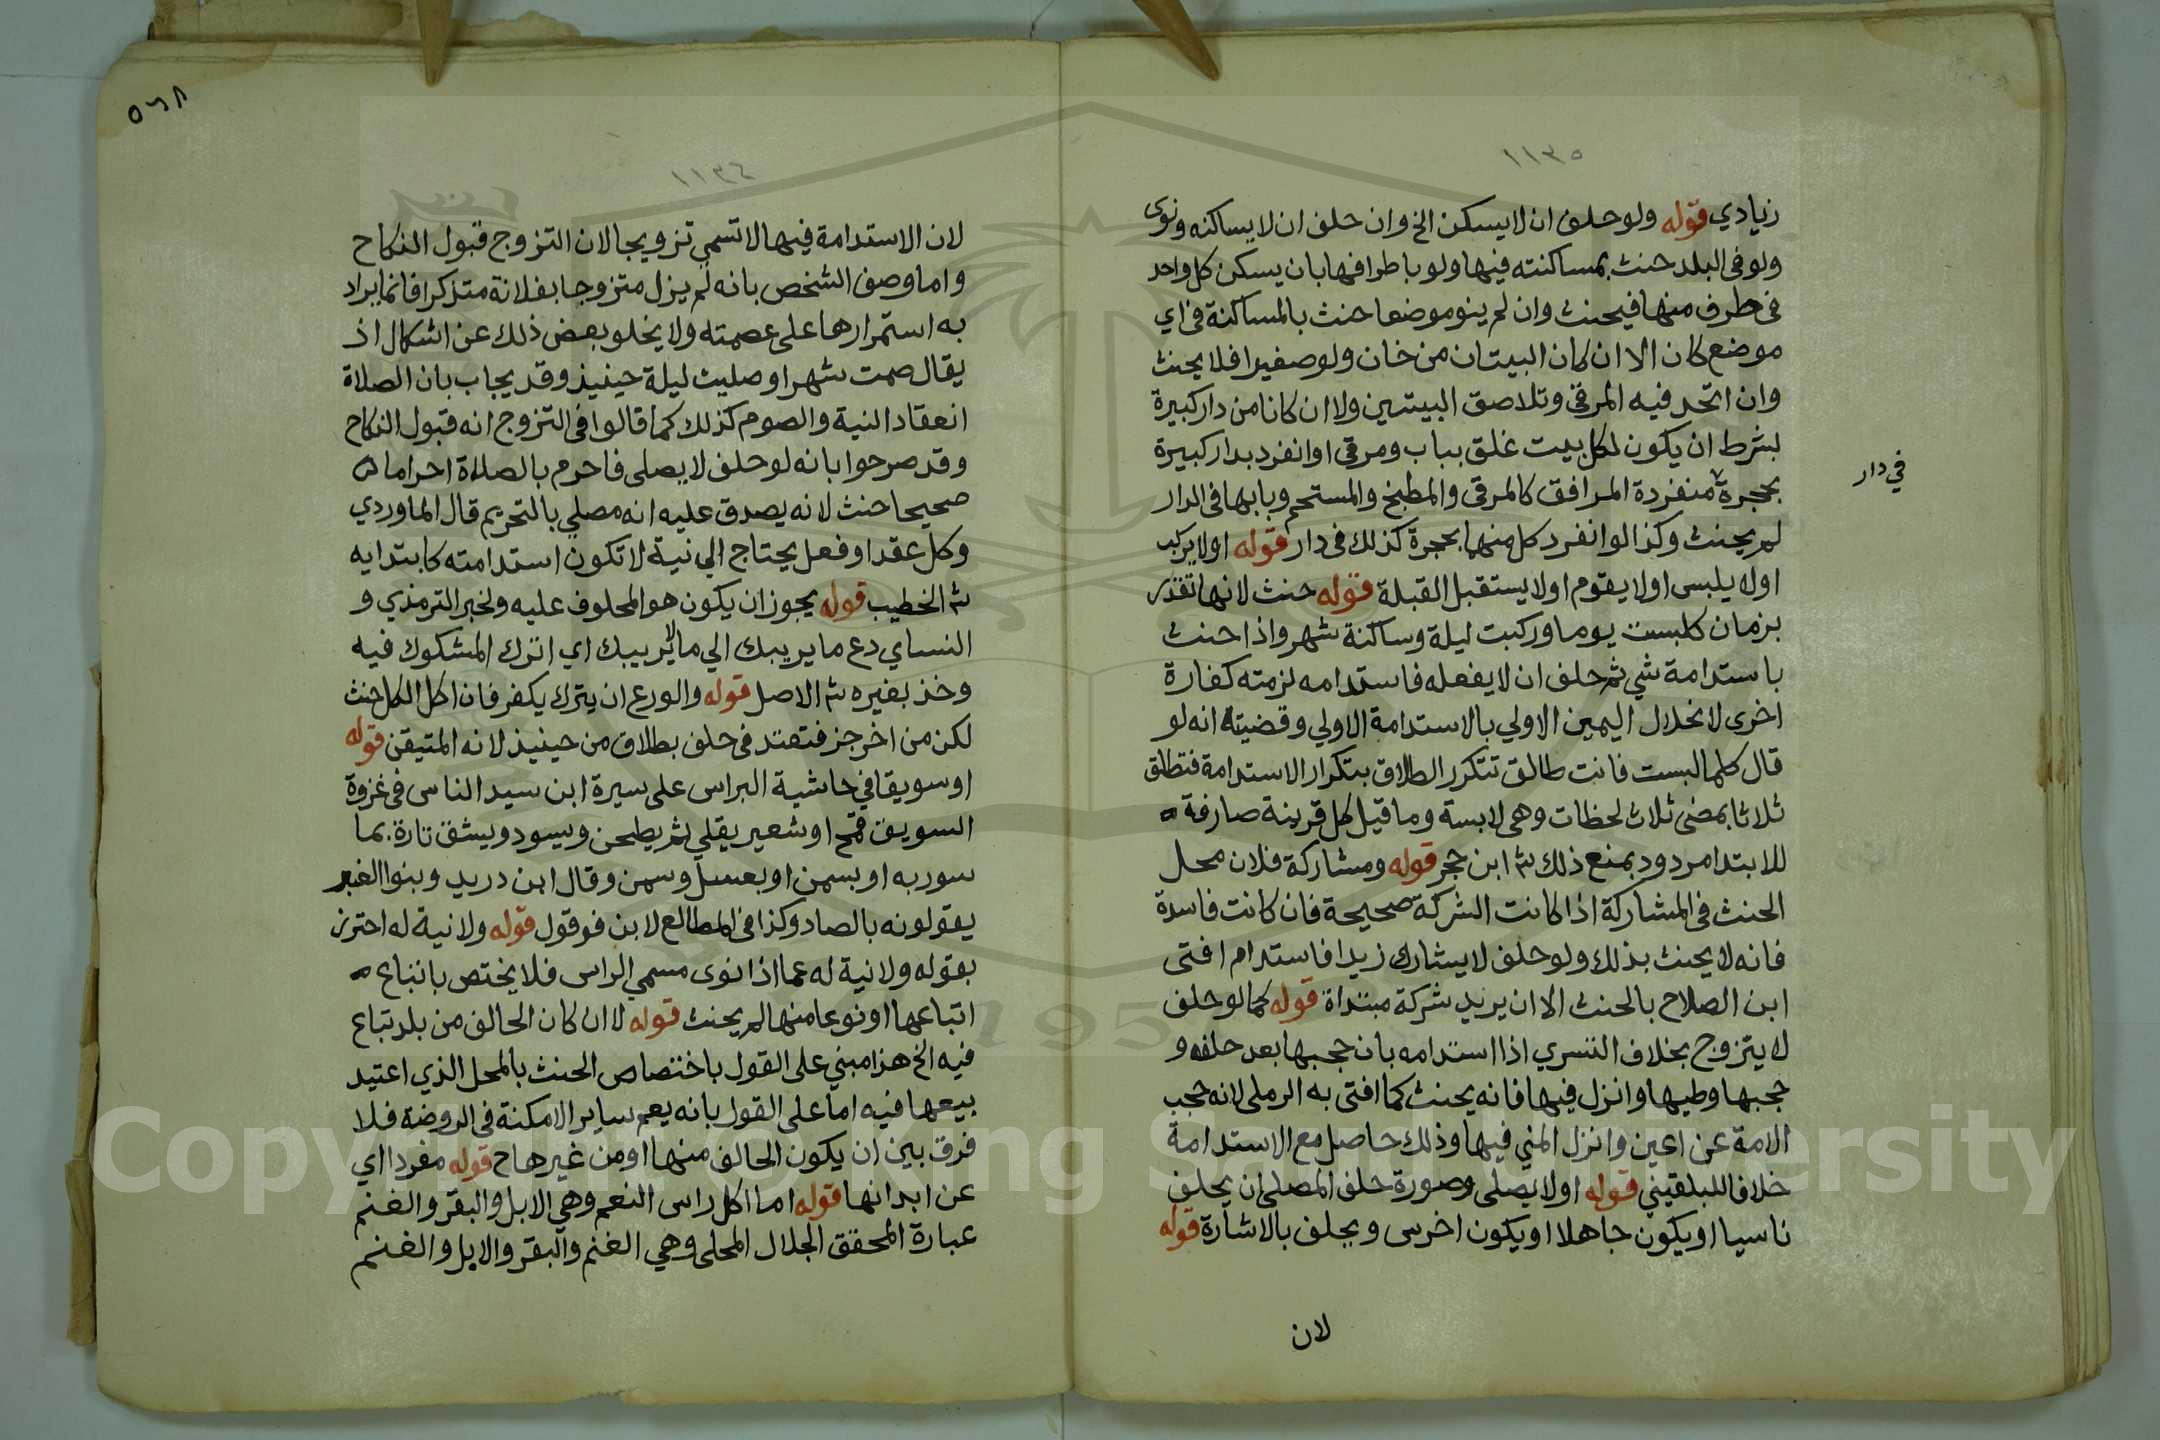 ١١٣٥
زيادي قوله ولو حلف ان لا يسكن الخ وان حلف ان لا يساكنه ونوى
ولو في البلد حنث بمساكنته فيها ولو باطرافها بان يسكن كل واحد
في طرف منها فيحنث وان لم ينو موضعا حنث بالمساكنة في اي
موضع كان الا ان كان البيتان من خان ولو صغيرا فلا يحنث
وان اتحد فيه المرقي وتلاصق البيتين ولا ان كانا من دار كبيرة
بشرط ان يكون لكل بيت غلق بباب ومرقي او انفرد بدار كبيرة
بحجرة منفردة المرافق كالمرقي والمطبخ والمستحم وبابها في الدار
في دار
لم يحنث وكذا لو انفرد كل منهما بحجرة كذلك في دار قوله او لا يركب
او لا يلبس او لا يقوم او لا يستقبل القبلة قوله حنث لانها تقدر
بزمان كلبست يوما وركبت ليلة وساكنة شهر واذا حنث
باستدامة شي ثم حلف ان لا يفعله فاستدامه لزمته كفارة
اخرى لانحلال اليمين الاولي بالاستدامة الاولي وقضيته انه لو
قال كلما لبست فانت طالق تتكرر الطلاق بتكرار الاستدامة فتطلق
ثلاثا بمضي ثلاث لحظات وهي لابسة وما قيل كل قرينة صارفة
للابتدا مردود بمنع ذلك ش ابن حجر قوله ومشاركة فلان محل
الحنث في المشاركة اذا كانت الشركة صحيحة فان كانت فاسدة
فانه لا يحنث بذلك ولو حلف لا يشارك زيدا فاستدام افتى
ابن الصلاح بالحنث الا ان يريد شركة مبتداة قوله كما لو حلف
لا يتزوج بخلاف التسري اذا استدامه بان حجبها بعد حلفه و
حجبها وطيها وانزل فيها فانه يحنث كما افتى به الرملي لانه حجب
الامة عن اعين وانزل المني فيها وذلك حاصل مع الاستدامة
خلافا للبلقيني قوله او لا يصلي وصورة حلف المصلي ان يحلف
ناسيا او يكون جاهلا او يكون اخرس ويحلف بالاشارة قوله
لان
٥٦٨
١١٣٤
لان الاستدامة فيها لا تسمي تزويجا لان التزوج قبول النكاح
واما وصف الشخص بانه لم يزل متزوجا بفلانة متذكرا فانما يراد
به استمرارها على عصمته ولا يخلو بعض ذلك عن اشكال اذ
يقال صمت شهرا وصليت ليلة حينيذ وقد يجاب بان الصلاة
انعقاد النية والصوم كذلك كما قالوا في التزوج انه قبول النكاح
وقد صرحوا بانه لو حلف لا يصلي فاحرم بالصلاة احراما
صحيحا حنث لانه يصدق عليه انه مصلي بالتحريم قال الماوردي
وكل عقد او فعل يحتاج الي نية لا تكون استدامته كابتدايه
ش الخطيب قوله يجوز ان يكون هو المحلوف عليه ولخبر الترمذي و
النساي دع ما يريبك الي ما لا يريبك اي اترك المشكوك فيه
وخذ بغيره ش الاصل قوله والورع ان يترك يكفر فان اكل الكل حنث
لكن من اخر جز فتعتد في حلف بطلاق من حينيذ لانه المتيقن قوله
او سويقا في حاشية البراس على سيرة ابن سيد الناس في غزوة
السويق قمح او شعير يقلي ثم يطحن ويسود ويشق تارة بما
سوربه او بسمن او بعسل وسمن وقال ابن دريد وبنوا العنبر
يقولونه بالصاد وكذا في المطالع لابن فوقول قوله ولا نية له احترز
بقوله ولا نية له عما اذا نوى مسمي الراس فلا يختص باتباع
اتباعها او نوعا منها لم يحنث قوله لا ان كان الحالف من بلد تباع
فيه الخ هذا مبني على القول باختصاص الحنث بالمحل الذي اعتيد
بيعها فيه اما على القول بانه يعم ساير الامكنة في الروضة فلا
فرق بين ان يكون الحالف منها او من غيرها ح قوله مفردا اي
عن ابدانها قوله اما اكل راس النعم وهي الابل والبقر والغنم
عبارة المحقق الجلال المحلي وهي الغنم والبقر والابل والغنم
Copyright © King Saud University
1957